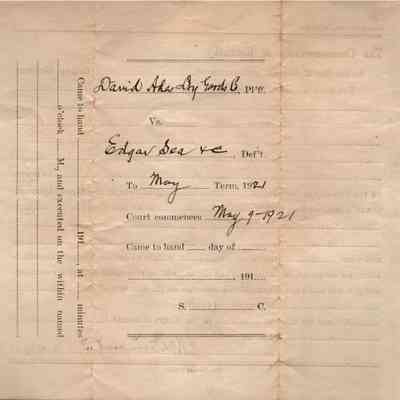 David Ades Dry Goods C., Pl'ff.
Vs.
Edgar Sea &c, Def't.
To May Term, 1921
Court commences May 9-1921
Came to hand ____ day of ____
____, 191__
S. ____ C.
Came to hand ____ 191__, at __ minutes
____ o'clock __ M., and executed on the within named